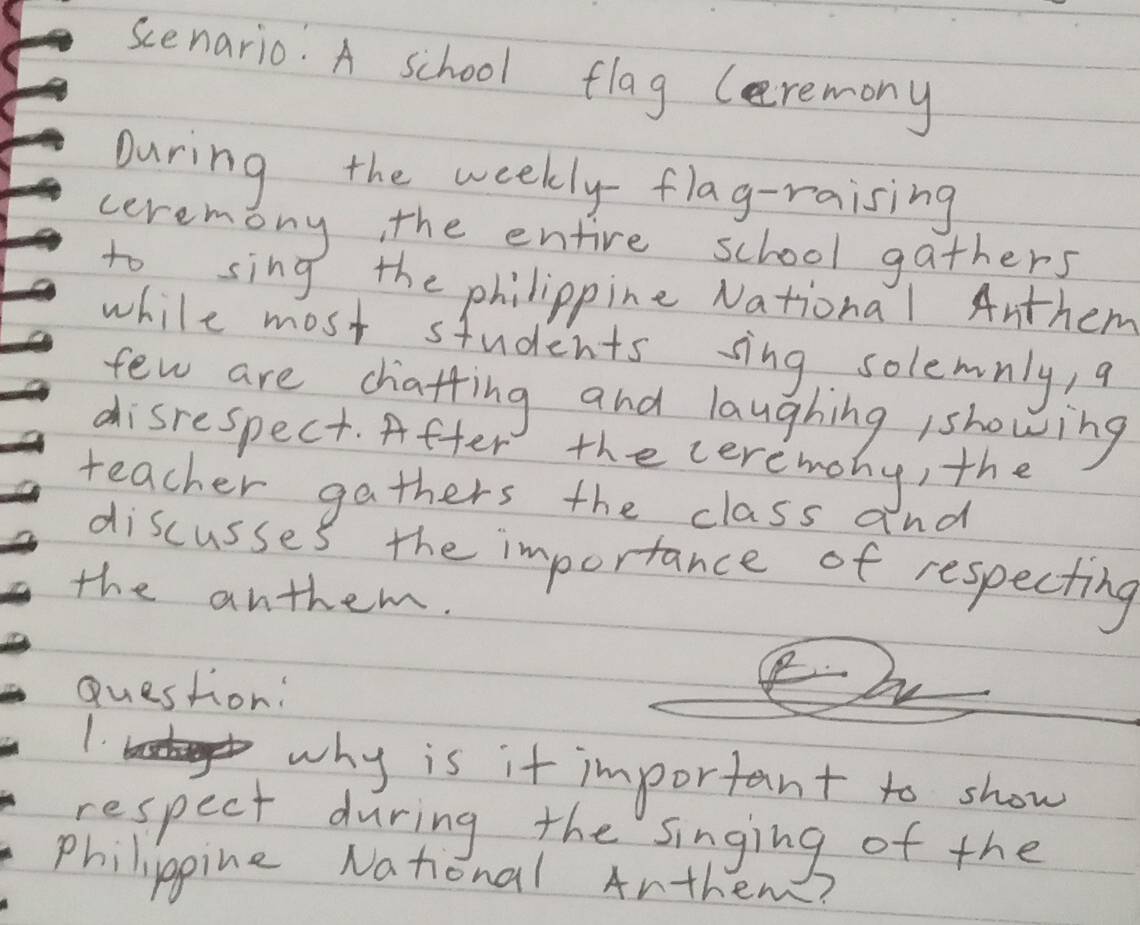 Scenario: A school flag Ceremony
During the weekly flag-raising
ceremony, the entire school gathers
to sing the philippine National Anthem
while most students sing solemnly, a
few are chatting and laughing, showing
disrespect. After the ceremony, the
teacher gathers the class and
discusses the importance of respecting
the anthem.
Question:
1. why is it important to show
respect during the singing of the
Philippine National Anthem?